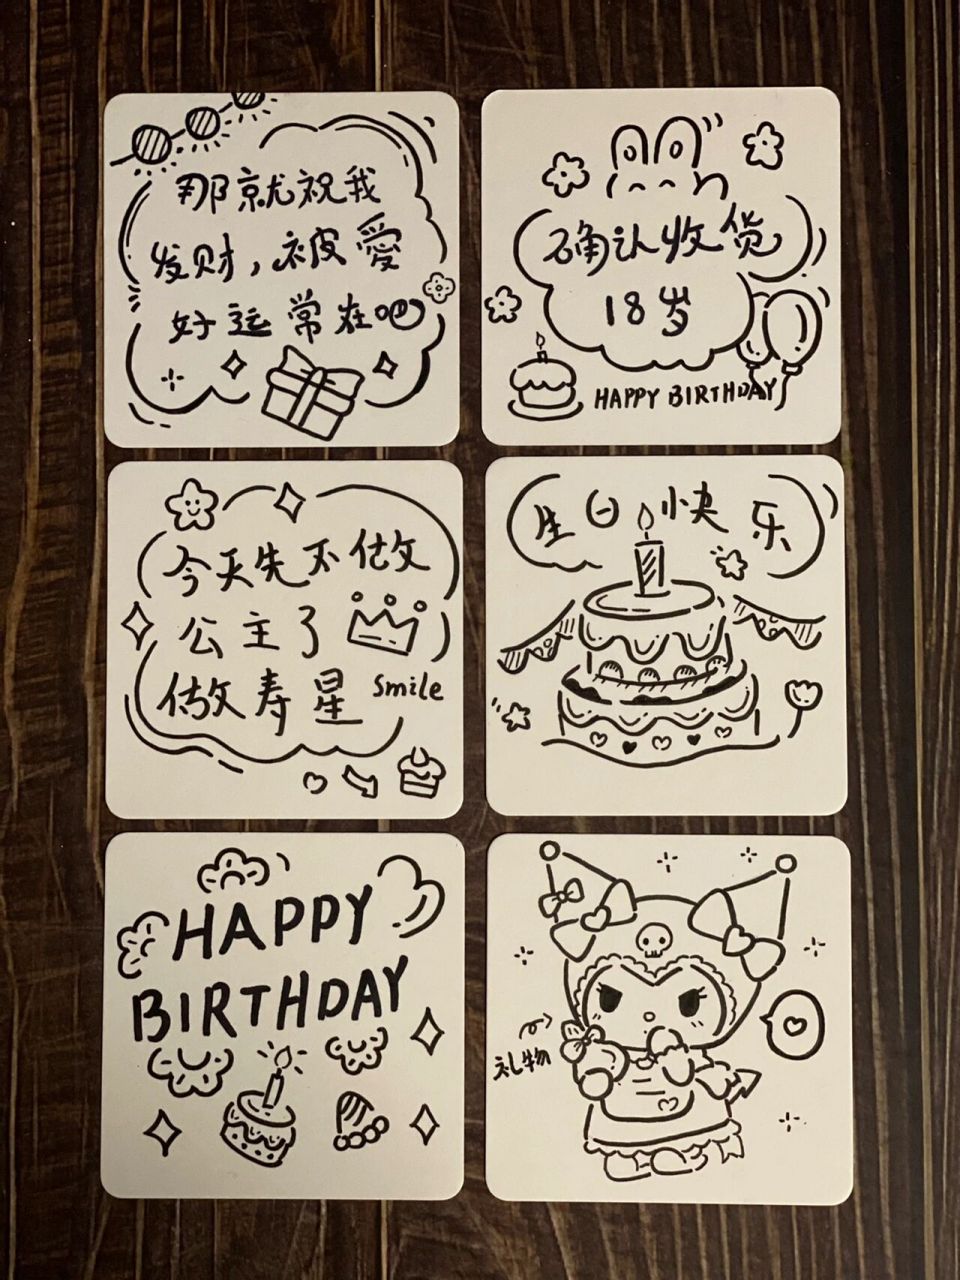 那就祝我
发财，被愛
好运常在吧
确认收货
18岁
HAPPY BIRTHDAY
今天先不做
公主了
做寿星 smile
生日快乐
HAPPY
BIRTHDAY
礼物